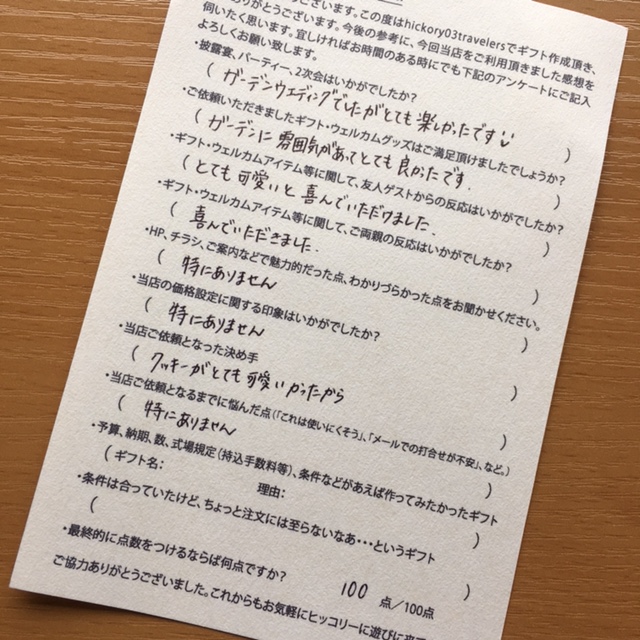 ございます。この度はhickory03travelersでギフト作成頂き、
ありがとうございます。今後の参考に、今回当店をご利用頂きました感想を
伺いたく思います。宜しければお時間のある時にでも下記のアンケートにご記入
よろしくお願い致します。
・披露宴、パーティー、2次会はいかがでしたか?
( ガーデンウエディングでしたがとても楽しかったです )
・ご依頼いただきましたギフト・ウェルカムグッズはご満足頂けましたでしょうか?
( ガーデンに雰囲気があってとても良かったです. )
・ギフト・ウェルカムアイテム等に関して、友人ゲストからの反応はいかがでしたか?
( とても可愛いと喜んでいただけました. )
・ギフト・ウェルカムアイテム等に関して、ご両親の反応はいかがでしたか?
( 喜んでいただきました. )
・HP、チラシ、ご案内などで魅力的だった点、わかりづらかった点をお聞かせください。
( 特にありません )
・当店の価格設定に関する印象はいかがでしたか?
( 特にありません )
・当店ご依頼となった決め手
( クッキーがとても可愛いかったから )
・当店ご依頼となるまでに悩んだ点(「これは使いにくそう」、「メールでの打合せが不安」、など。)
( 特にありません )
・予算、納期、数、式場規定(持込手数料等)、条件などがあえば作ってみたかったギフト
(ギフト名: 理由: )
・条件は合っていたけど、ちょっと注文には至らないなあ・・・というギフト
( )
・最終的に点数をつけるならば何点ですか? 100 点/100点
ご協力ありがとうございました。これからもお気軽にヒッコリーに遊びに